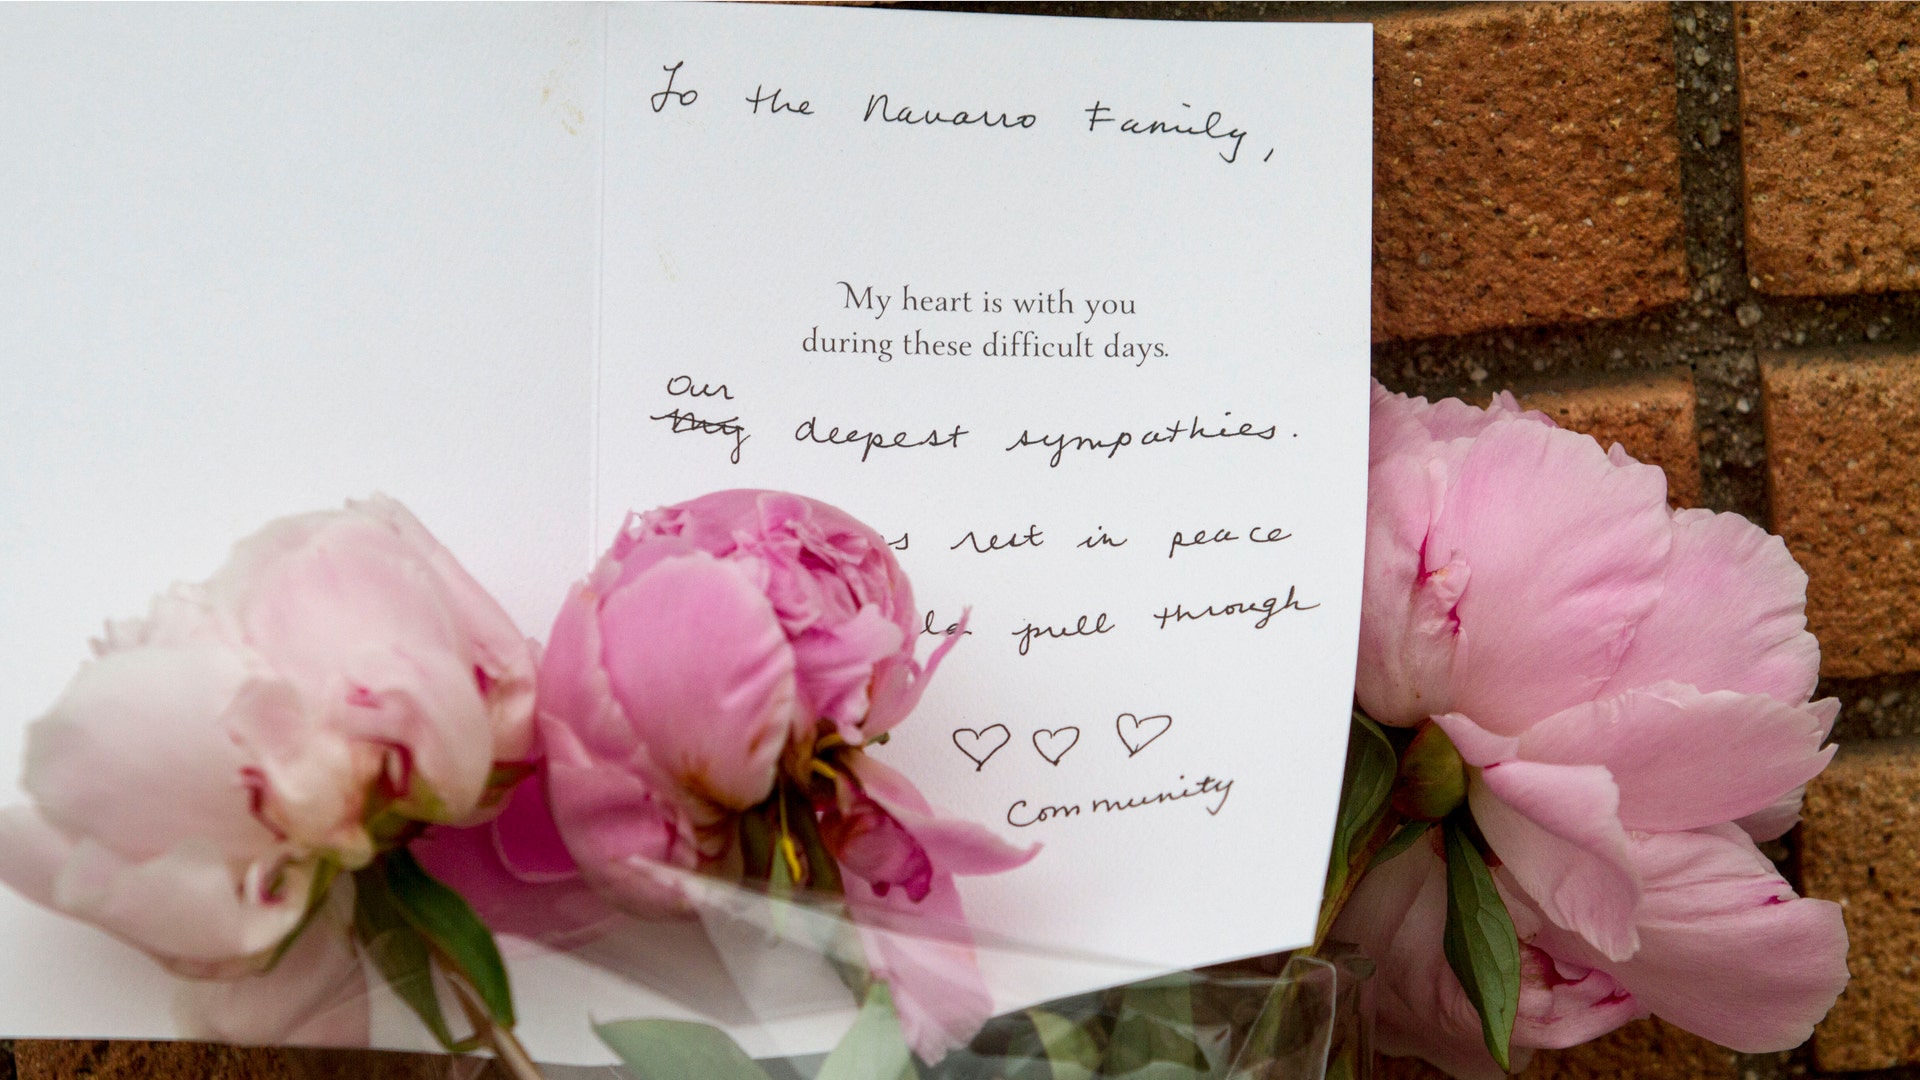 To the Navarro Family,
My heart is with you
during these difficult days.
Our
My deepest sympathies.
rest in peace
pull through
Community